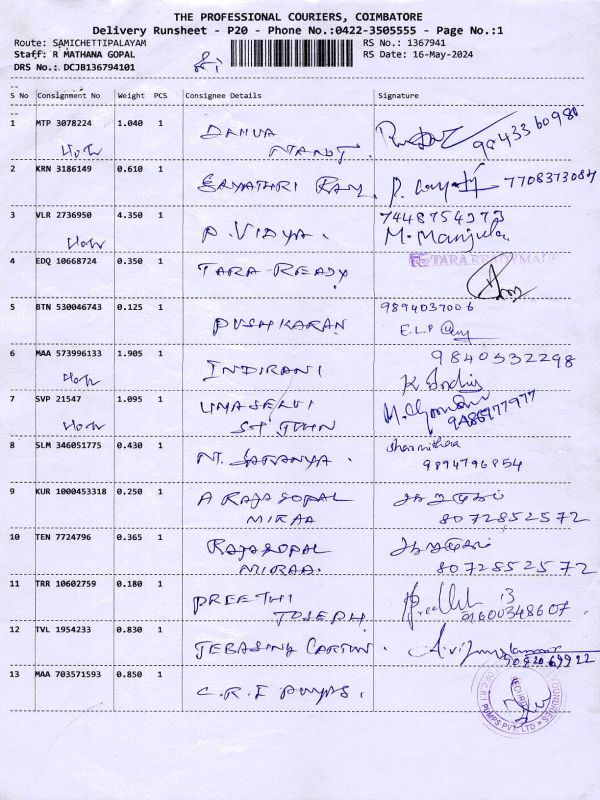 THE PROFESSIONAL COURIERS, COIMBATORE
Delivery Runsheet - P20 - Phone No.:0422-3505555 - Page No.:1
Route: SAMICHETTIPALAYAM RS No.: 1367941
Staff: R MATHANA GOPAL RS Date: 16-May-2024
DRS No.: DCJB136794101
S No Consignment No Weight PCS Consignee Details Signature
1 MTP 3078224 1.040 1 DANVA
NANDJ. 9843360980
2 KRN 3186149 0.610 1 GAYATHRI RAM. P. Gayatri 7708373084
3 VLR 2736950 4.350 1 P. VIDYA. 7448754373
M. Manjula
4 EDQ 10668724 0.350 1 TARA READY TARA READYMADE
5 BTN 530046743 0.125 1 PUSHKARAN 9894037006
E.L.P
6 MAA 573996133 1.905 1 INDIRANI 9840532298
K
7 SVP 21547 1.095 1 UMASELVI
ST JOHN 9486977977
8 SLM 346051775 0.430 1 NT. SARANYA. Sharmithra
9894796854
9 KUR 1000453318 0.250 1 A RAJAGOPAL
MIRAA 8072852572
10 TEN 7724796 0.365 1 RAJAGOPAL
MIRAA. 8072852572
11 TRR 10602759 0.180 1 PREETHI
JOSEPH 9600348607.
12 TVL 1954233 0.830 1 JEBASING CARTON.
9092069922
13 MAA 703571593 0.850 1 C.R.I PUMPS.
SECURITY
OF C.R.I. PUMPS PVT. LTD